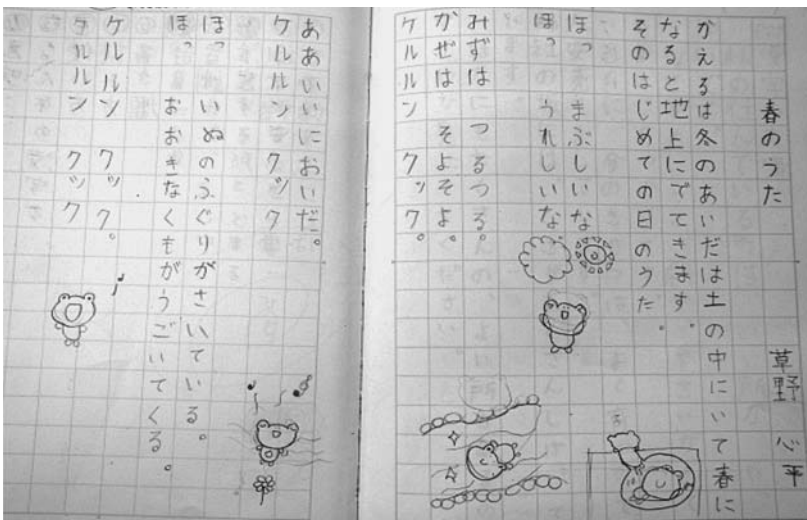 春のうた
草野 心平
かえるは冬のあいだは土の中にいて春に
なると地上にでてきます。
そのはじめての日のうた。
ほっ まぶしいな
ほっ うれしいな
みずは つるつる。
かぜは そよそよ。
ケルルン クック。
ああいいにおいだ。
ケルルン クック
ほっ いぬのふぐりがさいている。
ほっ おおきなくもがうごいてくる。
ケルルン クック。
ケルルン クック